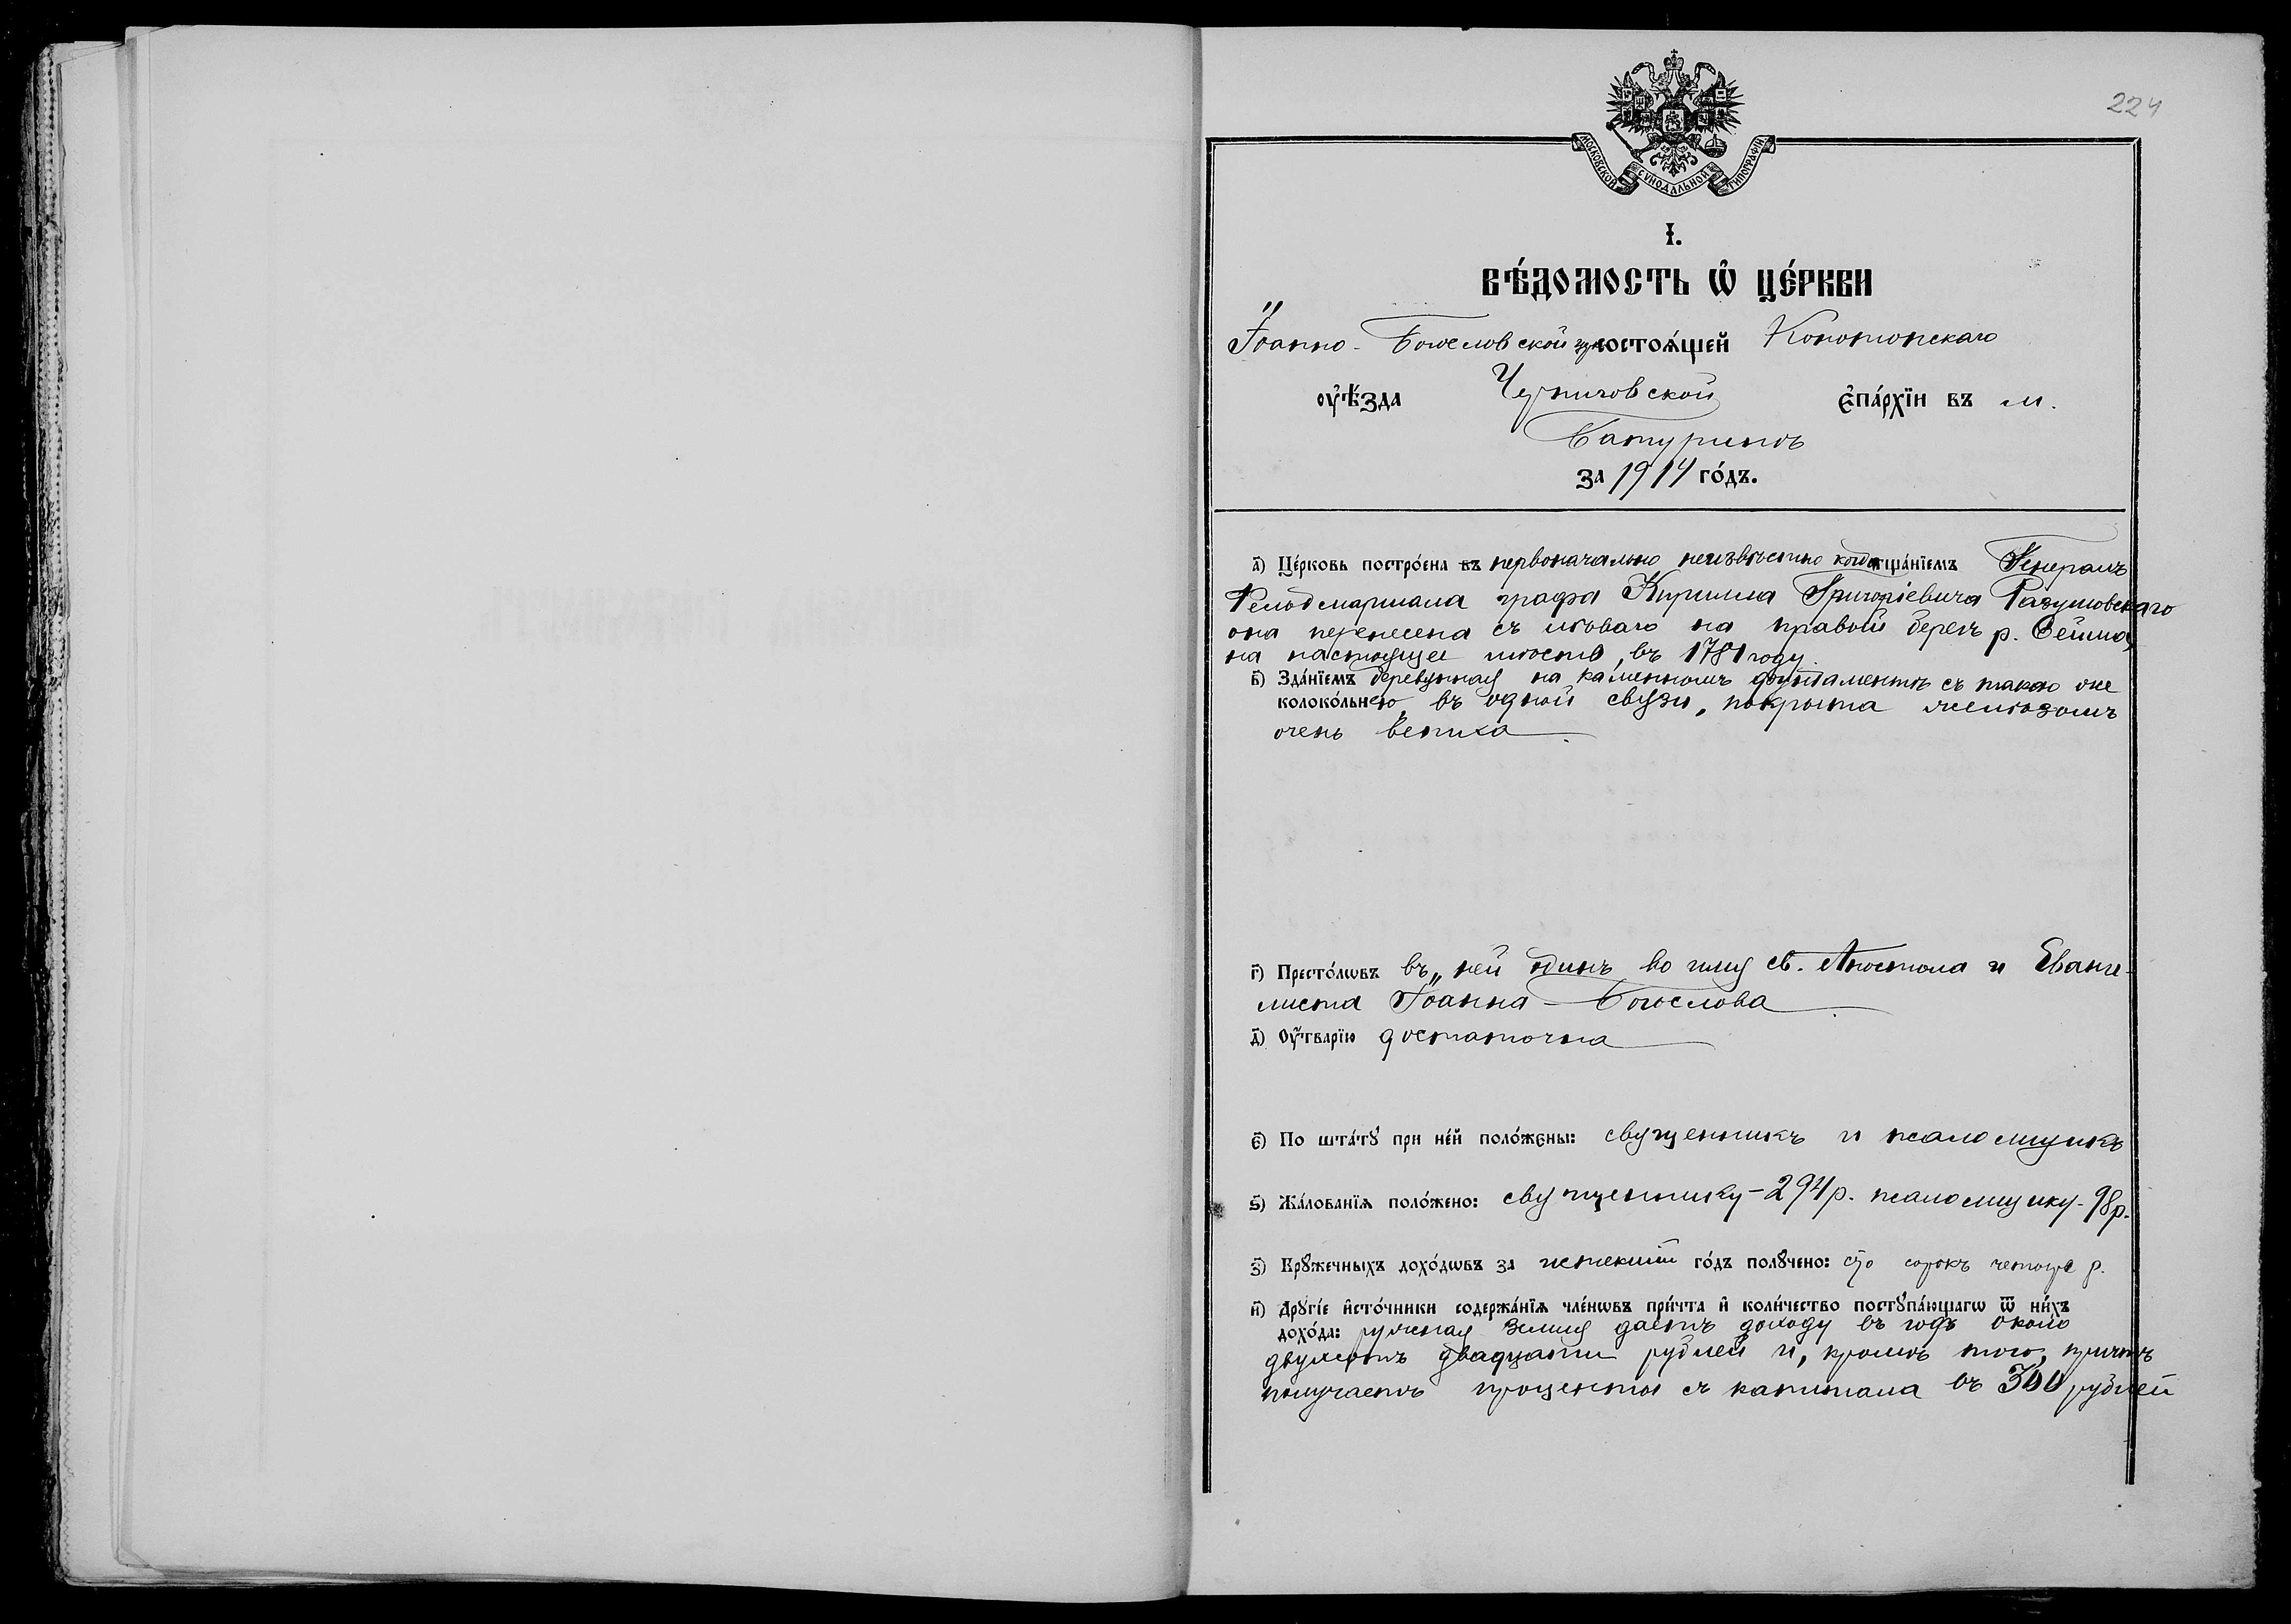 224
МОСКОВСКОЙ СУНОДАЛЬНОЙ ТИПОГРАФІИ
І.
ВѢ́ДОМОСТЬ Ѡ҆ ЦЕ́РКВИ
Іоанно-Богословской состоѧ́щей Конотопскаго
ᲂу҆ѣ́зда Черниговской є҆па́рхїи въ м.
Батуринѣ
за 1914 го́дъ.
а҃) Це́рковь постро́ена въ первоначально неизвѣстно когда тща́нїемъ Генералъ
Фельдмаршала графа Кирилла Григоріевича Разумовскаго
она перенесена съ лѣваго на правый берегъ р. Сейма,
на настоящее мѣсто, въ 1781 году.
в҃) Зда́нїемъ деревянная на каменномъ фундаментѣ съ такою же
колоко́льнею, въ одной связи, покрыта желѣзомъ
очень ветха.
г҃) Престо́лѡвъ въ ней одинъ во имя св. Апостола и Еванге-
листа Іоанна-Богослова.
д҃) Оу҆́тварїю достаточна
є҃) По шта́тꙋ при не́й поло́жены: священникъ и псаломщикъ
ѕ҃) Жа́лованїѧ поло́жено: священнику-294 р. псаломщику-98 р.
з҃) Крꙋ́жечныхъ дохо́дѡвъ за истекшій го́дъ полꙋ́чено: сто сорокъ четыре р.
и҃) Дрꙋгі́е и҆сто́чники содержа́нїѧ чле́нѡвъ при́чта и҆ коли́чество постꙋпа́ющагѡ ѿ ни́хъ
дохо́да: ружная земля даетъ доходу въ годъ около
двухсотъ двадцати рублей и, кромѣ того, причтъ
получаетъ проценты съ капитала въ 300 рублей